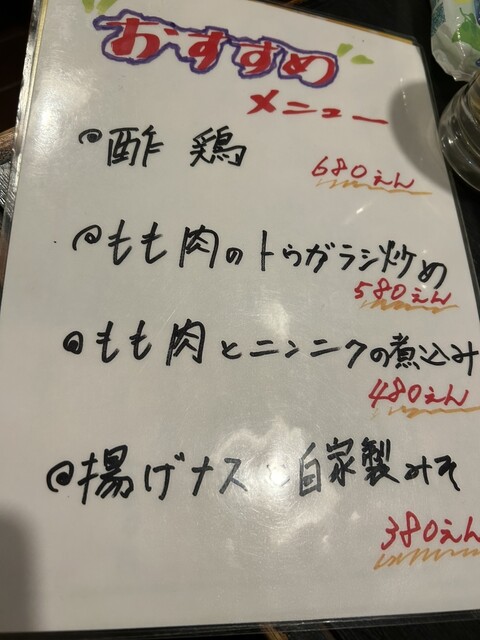 おすすめ
メニュー
酢鶏
680えん
もも肉のトウガラシ炒め
580えん
もも肉とニンニクの煮込み
480えん
揚げナス 自家製みそ
380えん